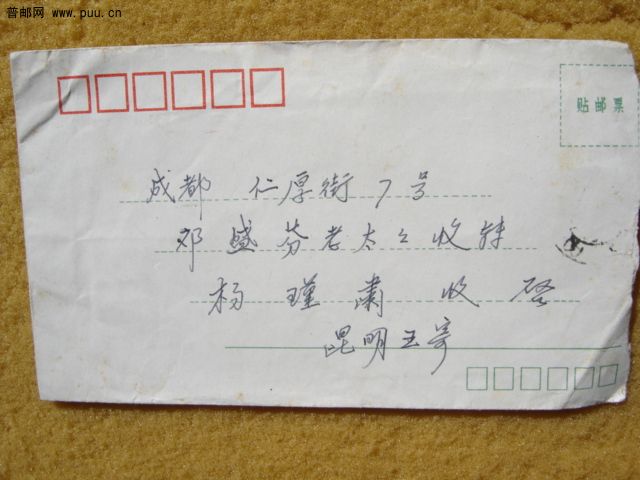 普邮网 www.puu.cn
贴邮票
成都 仁厚街7号
邓盛芬老太太收转
杨瑾肃 收启
昆明王寄